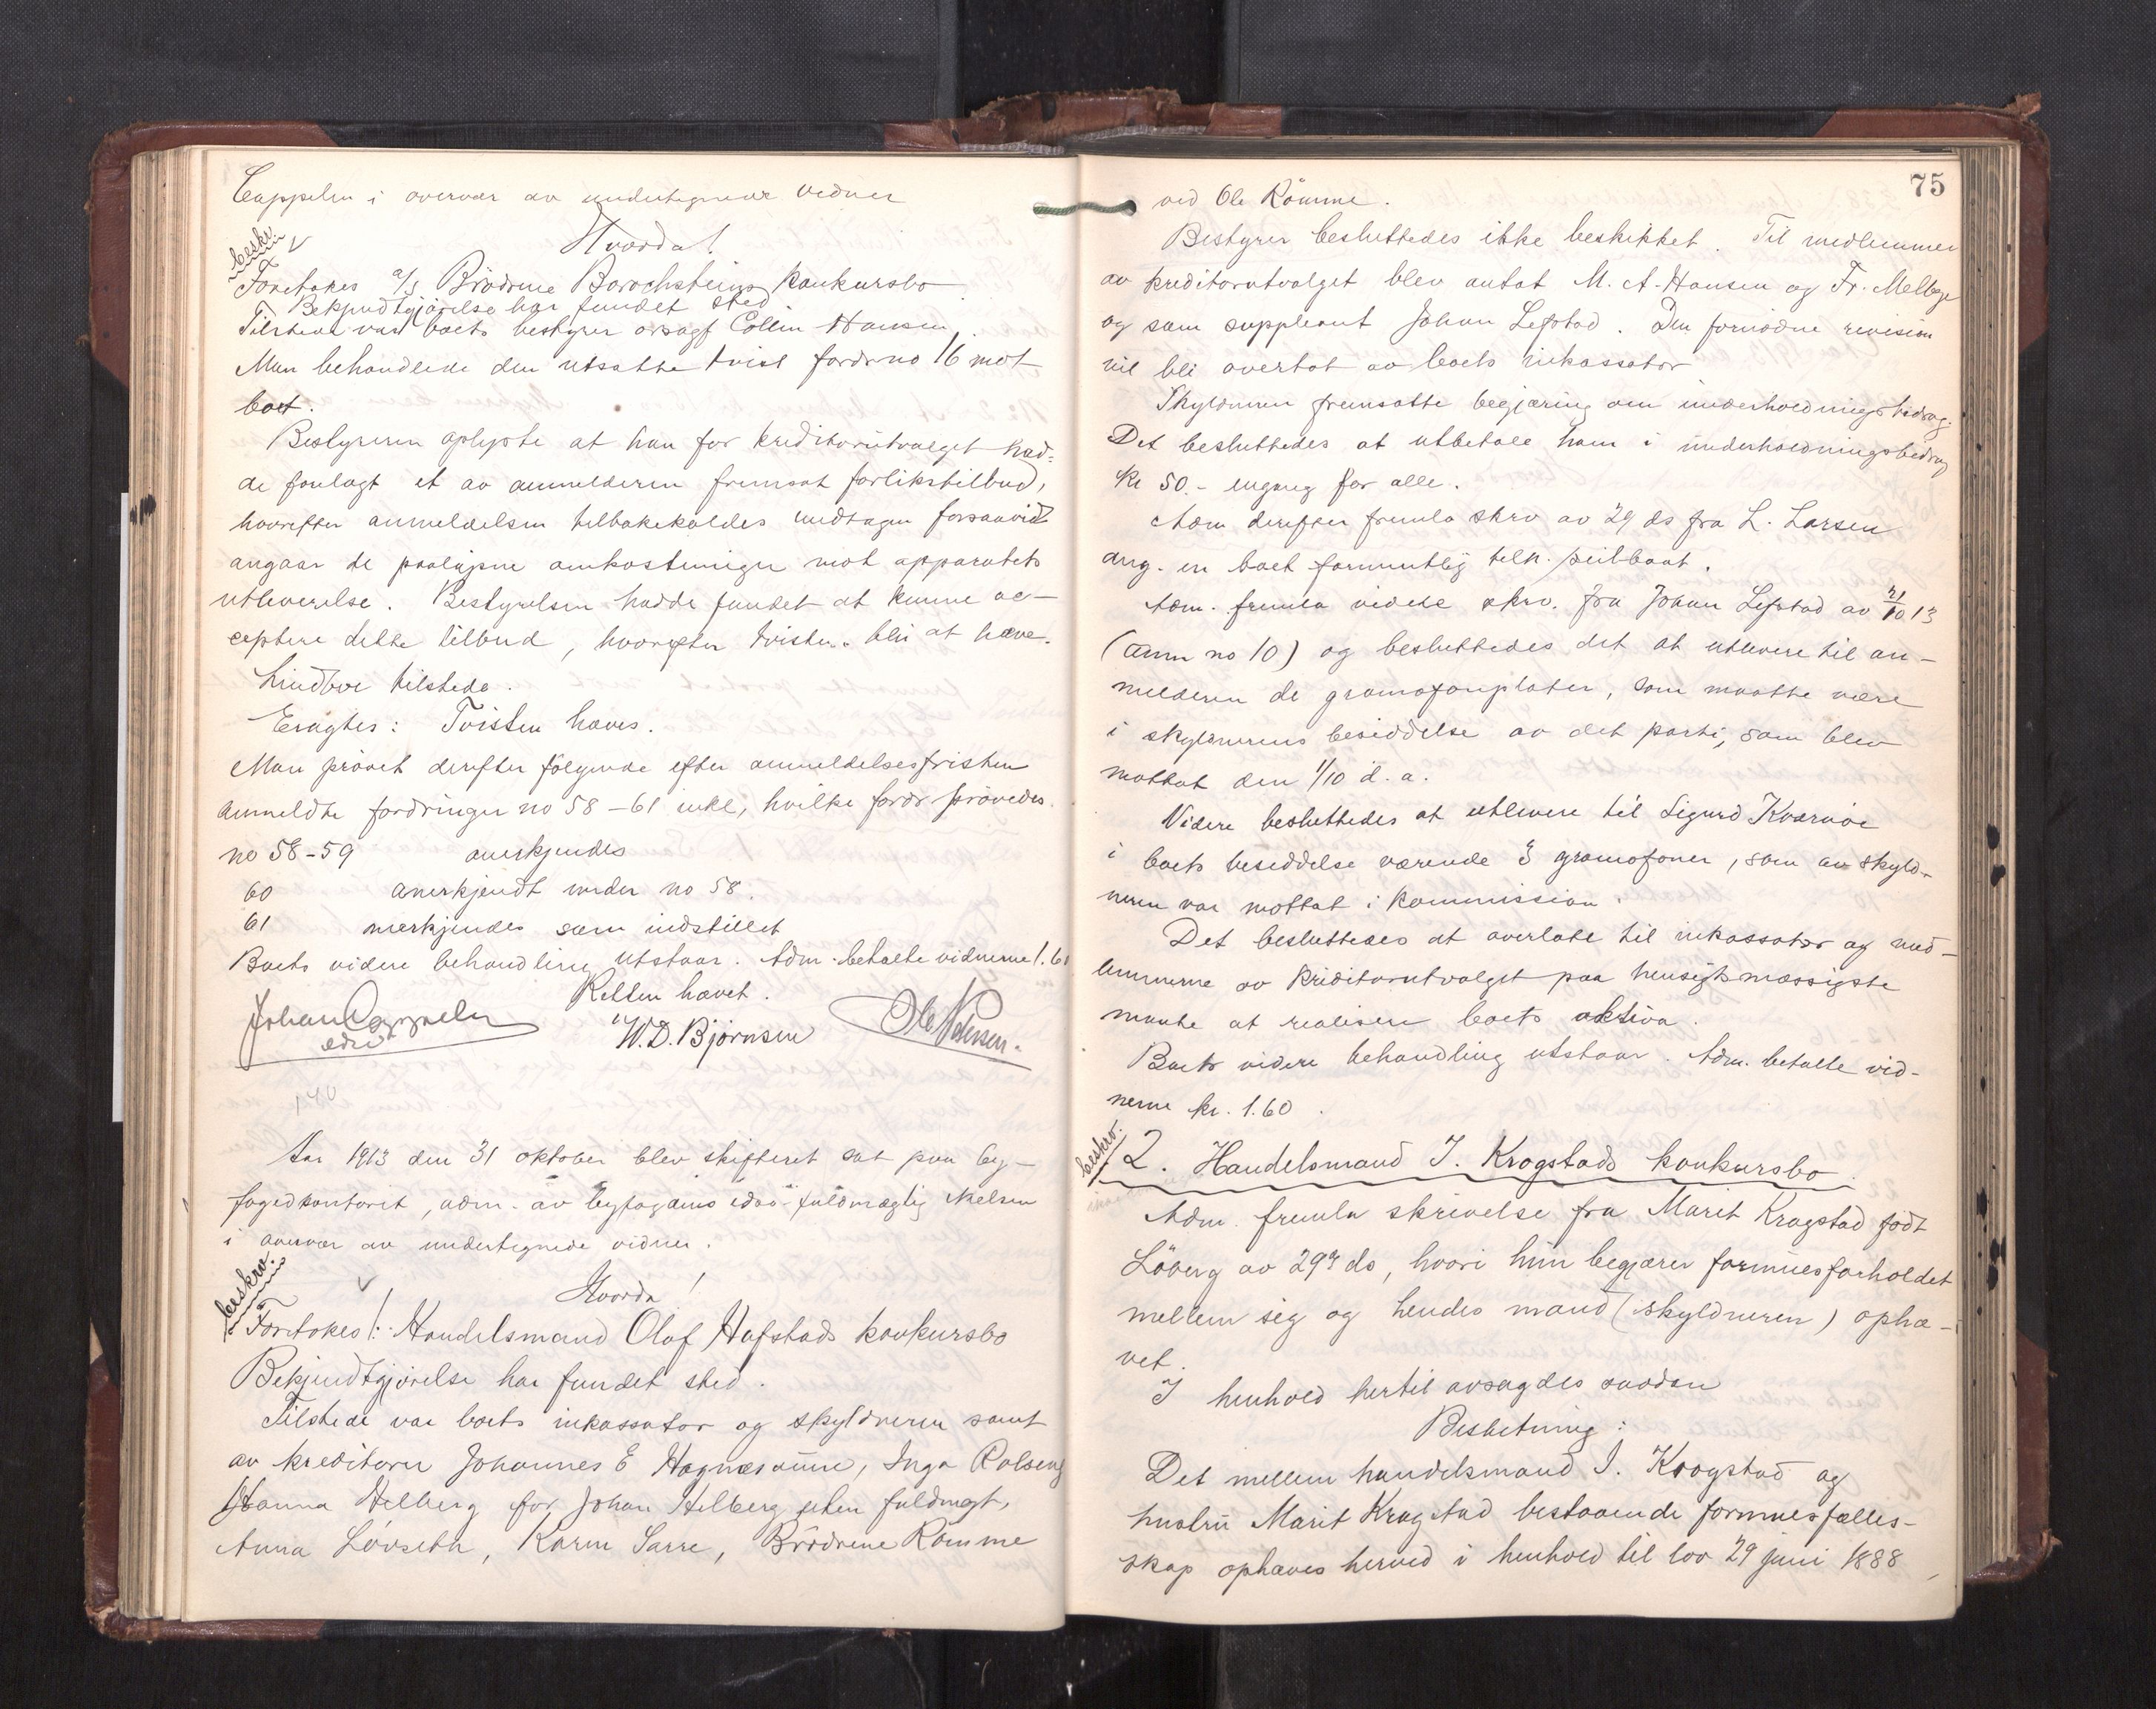 Cappelen i overvær av undertegnede vidner
Hvorda!
beskr.
Foretokes a/s Brödrene Borochsteins konkursbo
Bekjendtgjörelse har fundet sted
Tilstede var boets bestyrer orsagf Collin Hansen.
Man behandlede den utsatte tvist fordr no 16 mot
boet.
Bestyreren oplyste at han for kreditorutvalget had-
de forelagt et av anmelderen fremsat forlikstilbud,
hvorefter anmeldelsen tilbakekaldes undtagen forsaavidt
angaar de paaløpne omkostninger mot apparatets
utleverelse. Bestyrelsen hadde fundet at kunne ac-
ceptere dette tilbud, hvorefter tvisten blir at hæve.
Lindboe tilstede.
Eragtes: Tvisten hæves.
Man prövet derefter fölgende efter anmeldelsesfristen
anmeldte fordringer no 58-61 inkl, hvilke fordr prövedes.
no 58-59 anerkjendes
60 anerkjendt under no 58.
61 anerkjendes som indstillet
Boets videre behandling utstaar. Adm. betalte vidnerne 1.60
Retten hævet.
Johan Cappelen
edsv
W. D. Bjørnsen
Ole Pedersen.
140
Aar 1913 den 31 oktober blev skifteret sat paa by-
fogedkontoret, adm. av byfogdens edsv. fuldmægtig Nielsen
i overvær av undertegnede vidner.
Hvorda!
beskrv.
Foretokes 1. Handelsmand Olaf Hafstads konkursbo
Bekjendtgjörelse har fundet sted.
Tilstede var boets inkassator og skyldneren samt
av kreditorer Johannes E Hagnæsaune, Inga Rolseng
Hanna Helberg for Johan Helberg uten fuldmagt,
Anna Lövseth, Karen Sarre, Brödrene Römme
75
ved Ole Römme.
Bestyrer besluttedes ikke beskikket. Til medlemmer
av kreditorutvalget blev antat M. A. Hansen og Fr. Melbye
og som suppleant Johan Lefstad. Den fornödne revision
vil bli overtat av boets inkassator
Skyldneren fremsatte begjæring om underholdningsbidrag.
Det besluttedes at utbetale ham i underholdningsbidrag
kr 50.- engang for alle.
Adm derefter fremla skrv av 29 ds fra L. Larsen
ang. en boet formentlig tilh. seilbaat.
Adm. fremla videre skrv. fra Johan Lefstad av 21/10 13
(anm no 10) og besluttedes det at utlevere til an-
melderen de gramofonplater, som maatte være
i skyldnerens besiddelse av det parti, som blev
mottat den 1/10 d. a.
Videre besluttedes at utlevere til Sigurd Kværnöe
i boets besiddelse værende 3 gramofoner, som av skyld-
neren var mottat i kommission.
Det besluttedes at overlate til inkassator og med-
lemmerne av kreditorutvalget paa hensigtsmæssigste
maate at realisere boets aktiva.
Boets videre behandling utstaar. Adm. betalte vid-
nerne kr. 1.60.
beskrv.
2. Handelsmand J. Krogstads konkursbo.
Adm. fremla skrivelse fra Marit Krogstad födt
Löberg av 29de ds, hvori hun begjærer formuesforholdet
mellem sig og hendes mand (skyldneren) ophæ-
vet.
I henhold hertil avsagdes saadan
Beslutning:
Det mellem handelsmand J. Krogstad og
hustru Marit Krogstad bestaaende formuesfælles-
skap ophæves herved i henhold til lov 29 juni 1888,